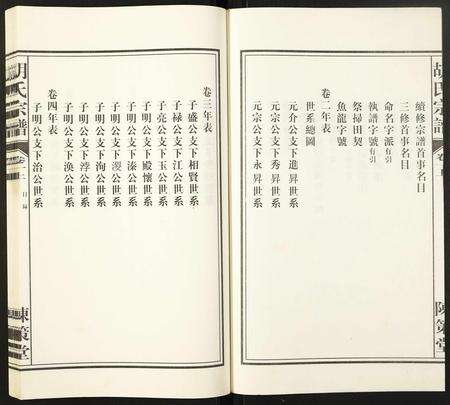 胡氏宗譜
陳策堂
續修宗譜首事名目
三修首事名目
命名字派有引
執譜字號有引
祭掃田契
魚龍字號
卷二年表
世系總圖
元介公支下進昇公世系
元宗公支下秀昇公世系
元宗公支下永昇公世系
卷三年表
子盛公支下相賢公世系
子祿公支下江公世系
子亮公支下玉公世系
子明公支下殿懷公世系
子明公支下溱公世系
子明公支下洵公世系
子明公支下浮公世系
子明公支下渙公世系
卷四年表
子明公支下治公世系
胡氏宗譜
卷一上
目錄
陳策堂